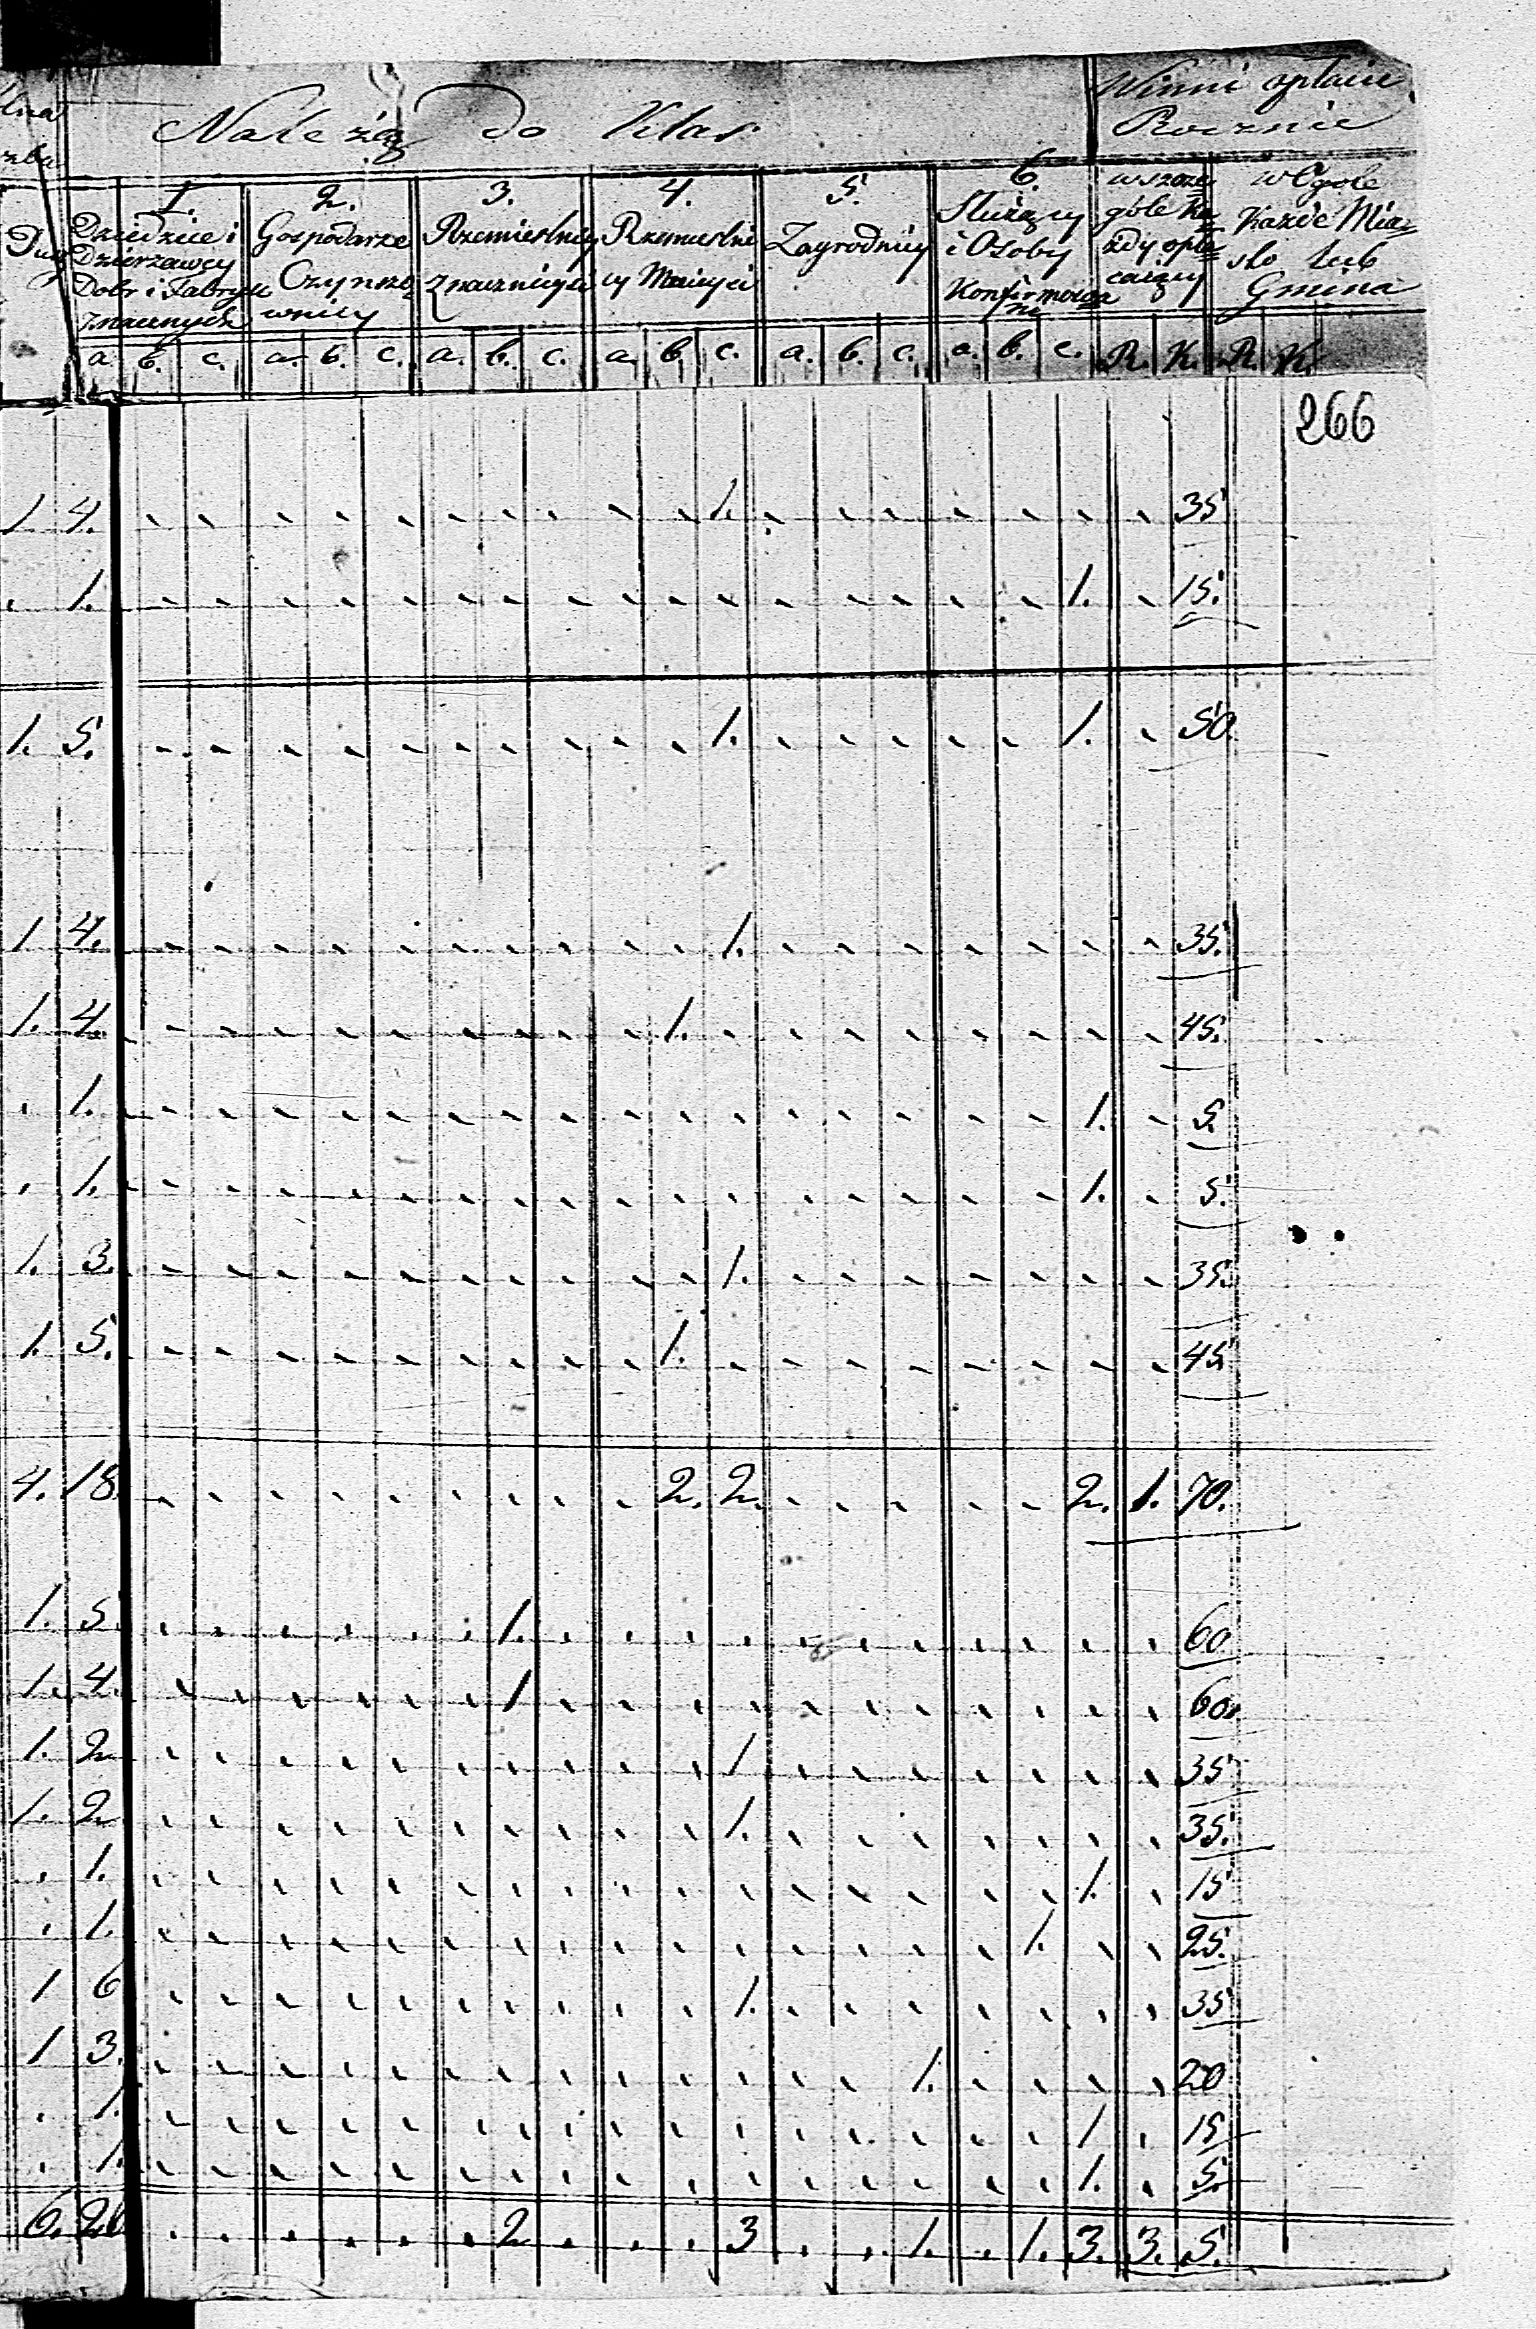 Winni opłacić
Należą do Klas
Rocznie
1. 2. 3. 4. 5. 6. w szcze w Ogole
Dusz Dziedzice i Gospodarze Rzemieslnicy Rzemieslni Zagrodnicy Służący góle ka Każde Mia
Dzierzawcy Czynszo znacznieysi cy Mnieysi i Osoby żdy opła sto lub
Dobr i Fabryk wnicy Konfirmowa caiący Gmina
znacznych ne
a. b. c. a. b. c. a. b. c. a. b. c. a. b. c. a. b. c. R. K. R. K.
266
1. 4. 1. 35
1. 1. 15.
1. 5. 1. 1. 50.
1. 4. 1. 35.
1. 4. 1. 45.
1. 1. 5.
1. 1. 5.
1. 3. 1. 35.
1. 5. 1. 45
4. 18. 2. 2. 2. 1. 70.
1. 5. 1. 60.
1. 4. 1 60.
1. 2 1 35
1. 2 1. 35.
1. 1. 15
1. 1. 25.
1 6 1. 35
1 3. 1. 20
1. 1 15
1. 1. 5.
6. 26 2 3 1. 1. 3. 3. 5.